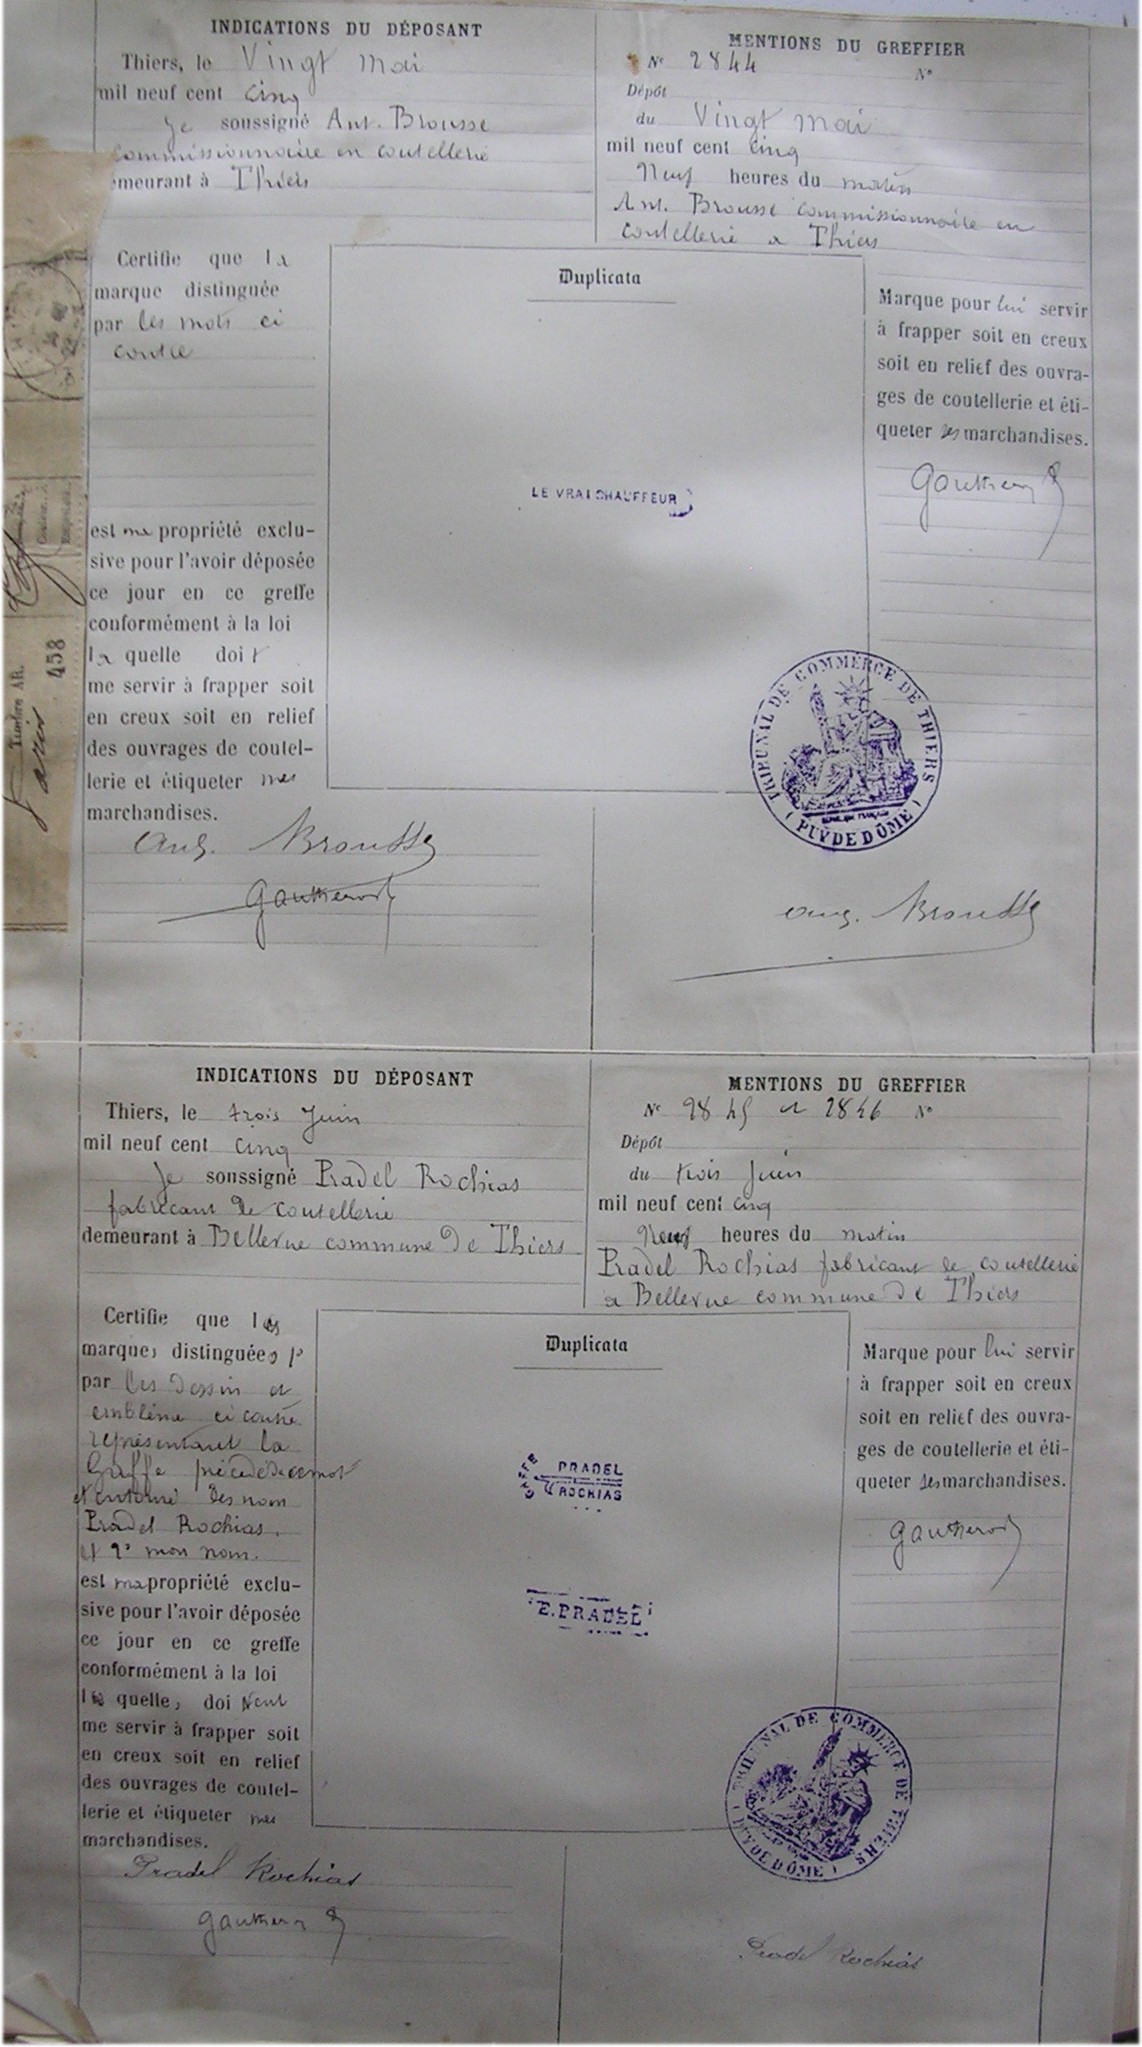 INDICATIONS DU DÉPOSANT
Thiers, le Vingt mai
mil neuf cent cinq
je soussigné Ant. Brousse
commissionnaire en coutellerie
demeurant à Thiers
MENTIONS DU GREFFIER
N° 2844 N°
Dépôt
du Vingt mai
mil neuf cent cinq
Neuf heures du matin
Ant. Brousse commissionnaire en
coutellerie a Thiers
Certifie que la
marque distinguée
par les mots ci
contre
est ma propriété exclu-
sive pour l'avoir déposée
ce jour en ce greffe
conformément à la loi
la quelle doit
me servir à frapper soit
en creux soit en relief
des ouvrages de coutel-
lerie et étiqueter mes
marchandises.
Ant. Brousse
Gautherod
Duplicata
LE VRAI CHAUFFEUR
Marque pour lui servir
à frapper soit en creux
soit en relief des ouvra-
ges de coutellerie et éti-
queter ses marchandises.
Gautherod
TRIBUNAL DE COMMERCE DE THIERS
(PUY DE DÔME)
Ant. Brousse
Timbre AR.
458
INDICATIONS DU DÉPOSANT
Thiers, le trois Juin
mil neuf cent cinq
Je soussigné Pradel Rochias
fabricant de coutellerie
demeurant à Bellevue commune de Thiers
MENTIONS DU GREFFIER
N° 2845 et 2846 N°
Dépôt
du trois Juin
mil neuf cent cinq
Neuf heures du matin
Pradel Rochias fabricant de coutellerie
a Bellevue commune de Thiers
Certifie que les
marques distinguées
par les dessin et
emblême ci contre
représentant la
Griffe précédé de ce mot
et entouré des nom
Pradel Rochias.
et 2° mon nom.
est ma propriété exclu-
sive pour l'avoir déposée
ce jour en ce greffe
conformément à la loi
les quelles doivent
me servir à frapper soit
en creux soit en relief
des ouvrages de coutel-
lerie et étiqueter mes
marchandises.
Pradel Rochias
Gautherod
Duplicata
PRADEL
ROCHIAS
E. PRADEL
Marque pour lui servir
à frapper soit en creux
soit en relief des ouvra-
ges de coutellerie et éti-
queter ses marchandises.
Gautherod
TRIBUNAL DE COMMERCE DE THIERS
(PUY DE DÔME)
Pradel Rochias